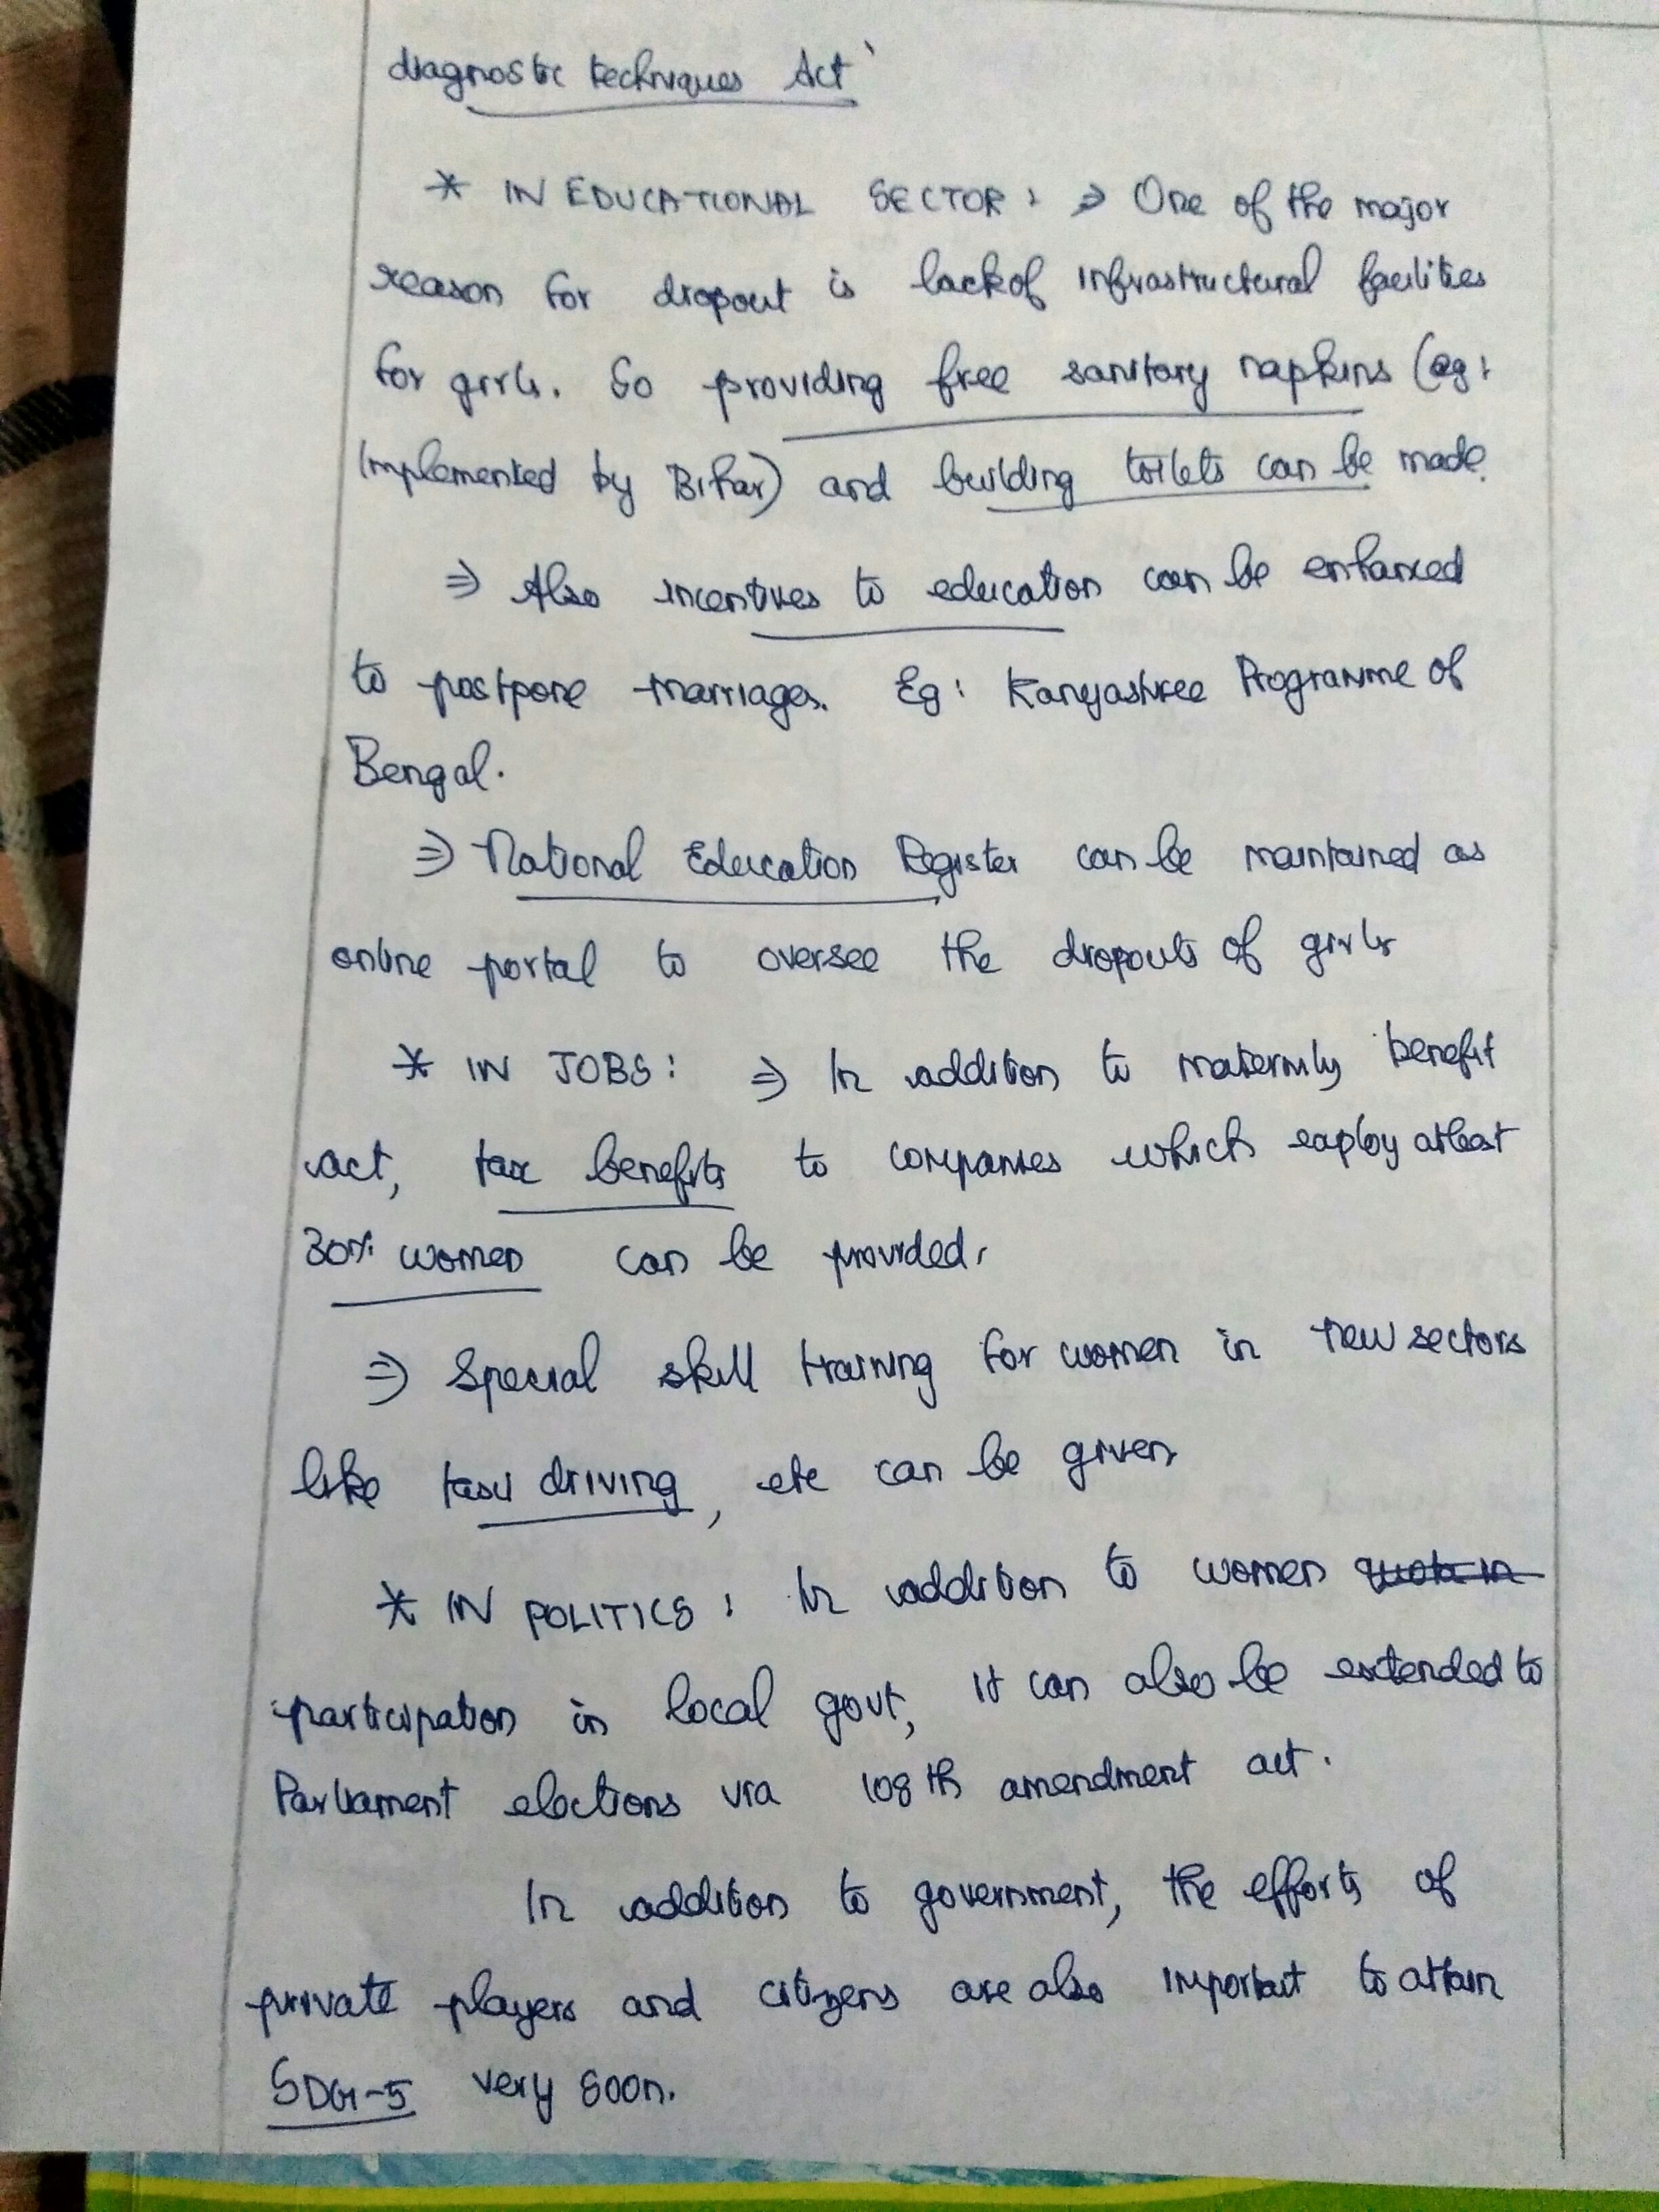 diagnostic techniques Act'
* IN EDUCATIONAL SECTOR : ⇒ One of the major
reason for dropout is lack of infrastructural facilities
for girls. So providing free sanitary napkins (eg:
Implemented by Bihar) and building toilets can be made.
⇒ Also incentives to education can be enhanced
to postpone marriages. Eg: Kanyashree Programme of
Bengal.
⇒ National Education Register can be maintained as
online portal to oversee the dropouts of girls
* IN JOBS: ⇒ In addition to maternity benefit
act, tax benefits to companies which employ atleast
30% women can be provided.
⇒ Special skill training for women in new sectors
like taxi driving, etc can be given
* IN POLITICS : In addition to women quota in
participation in local govt, it can also be extended to
Parliament elections via 108th amendment act.
In addition to government, the efforts of
private players and citizens are also important to attain
SDG-5 very soon.